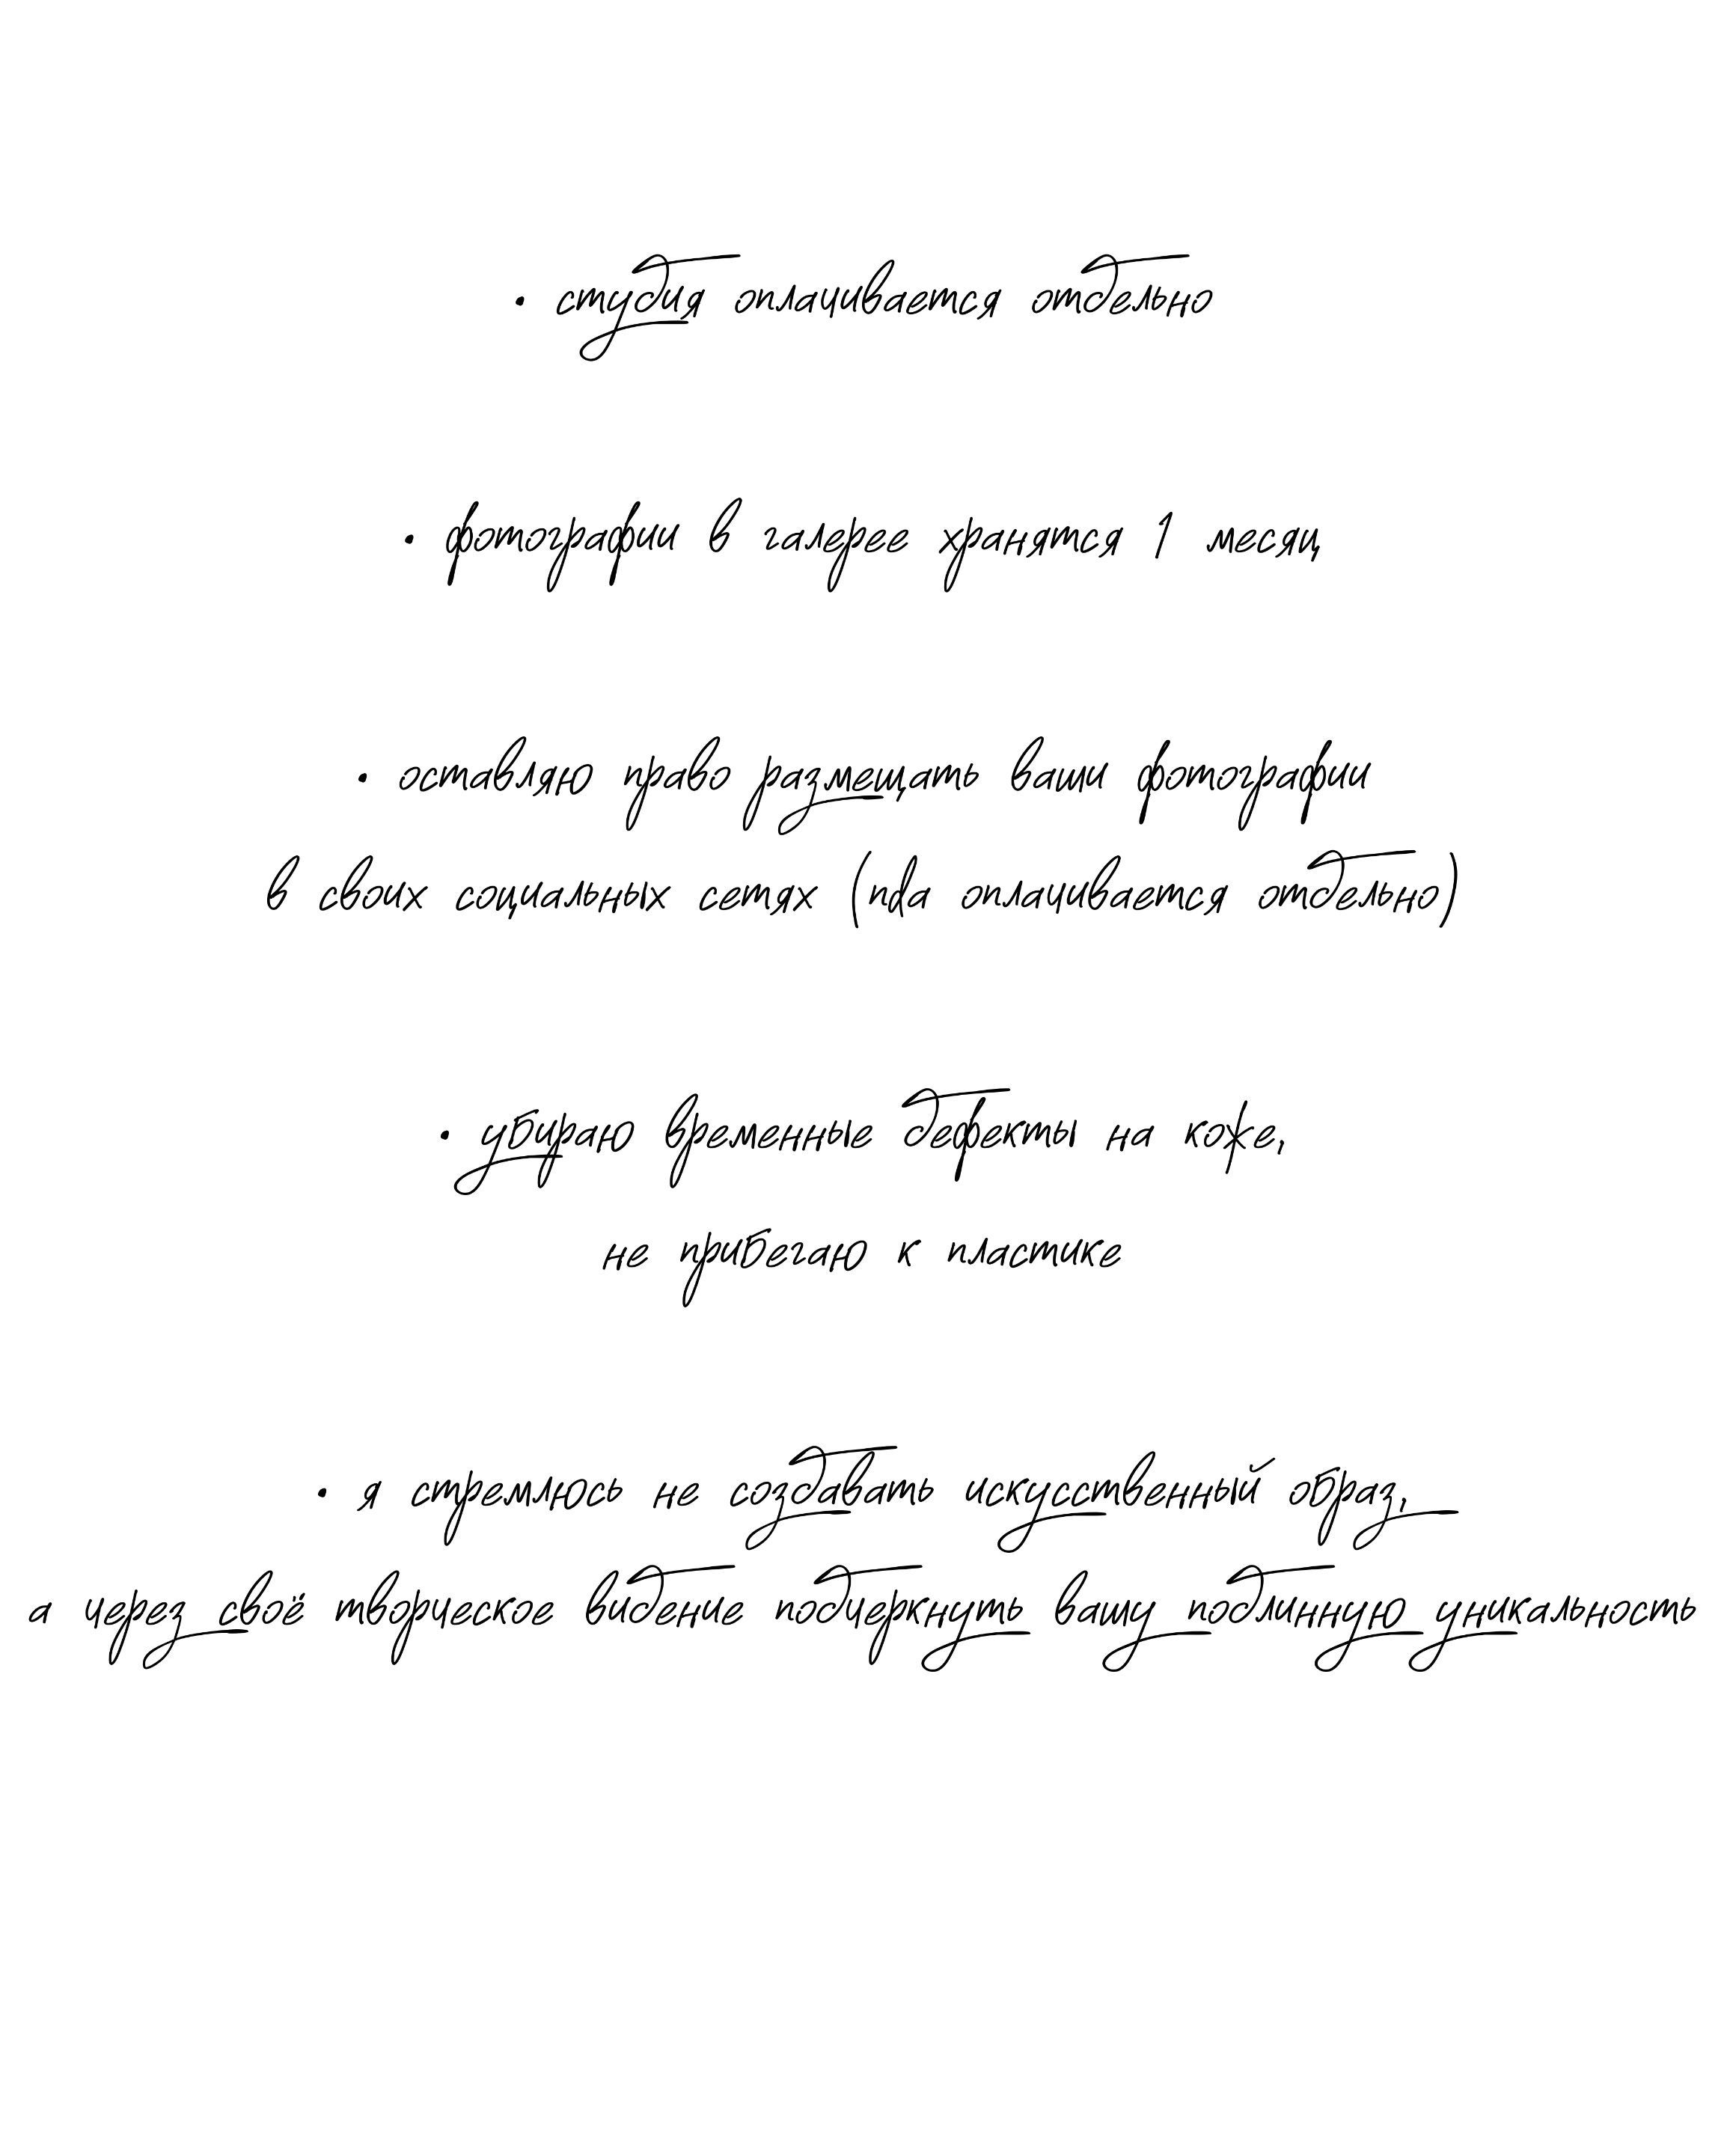 • студия оплачивается отдельно
• фотографии в галерее хранятся 1 месяц
• оставляю право размещать ваши фотографии
в своих социальных сетях (nda оплачивается отдельно)
• убираю временные дефекты на коже,
не прибегаю к пластике
• я стремлюсь не создавать искусственный образ,
а через своё творческое видение подчеркнуть вашу подлинную уникальность